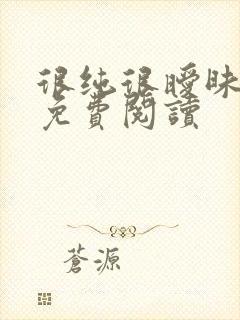 很纯很暧昧
免費閱讀
蒼源